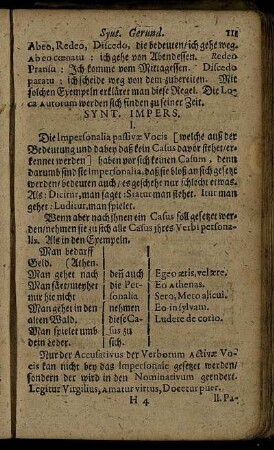 Synt. Gerund. 111
Abeo, Redeo, Discedo, die bedeuten/ ich gehe weg.
Abeo cœnatu: ich gehe von Abendessen. Redeo
Pransu: Ich komme vom Mittagessen. Discedo
paratu: ich scheide weg von dem zubereiten. Mit
solchen Exempeln erkläret man diese Regel. Die Lo-
ca Autorum werden sich finden zu seiner Zeit.
SYNT. IMPERS.
I.
Die Impersonalia passivæ Vocis [welche auß der
Bedeutung und dabey daß kein Casus davor stehet/ er-
kennet werden] haben vor sich keinen Casum, denn
darumb sind sie Impersonalia, daß sie bloß an sich gesetzt
werden/ bedeuten auch/ es geschehe nur schlecht etwas.
Als: Dicitur, man saget: Statur man stehet. Itur man
gehet: Luditur, man spielet.
Wenn aber nach ihnen ein Casus soll gesetzet wer-
den/ nehmen sie zu sich alle Casus ihres Verbi persona-
lis. Als in den Exempeln.
Man bedarff
Geld. (Athen.
Man gehet nach | deñ auch | Egeo æris, vel ære.
Man säet/ meyhet | die Per- | Eo Athenas.
nur hie nicht | sonalia | Sero, Meto alhicui.
Man gehet in den | nehmen | Eo in sylvam.
alten Wald. | diese Ca- | Ludere de corio.
Man spielet umb | sus zu
dein Leder. | sich.
Nur der Accusativus der Verborum Activæ Vo-
cis kan nicht bey das Impersonale gesetzet werden/
sondern der wird in den Nominativum geendert.
Legitur Virgilius, Amatur virtus, Docetur puer.
H 4 II. Pa-